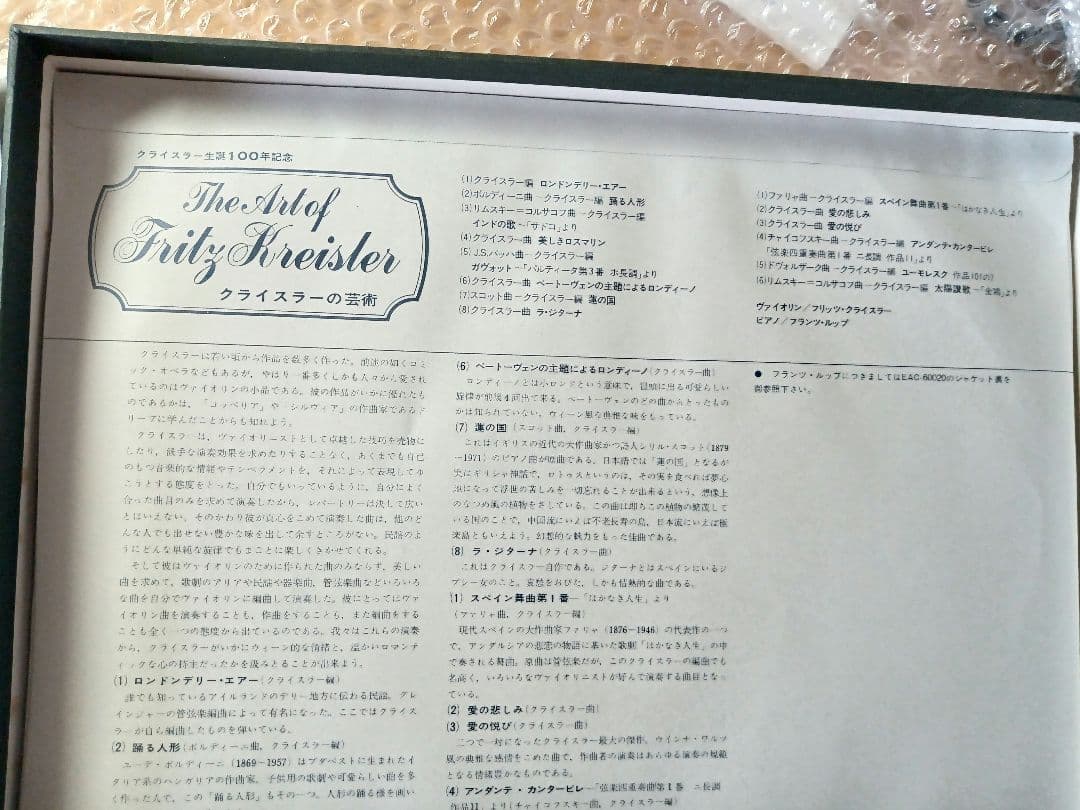 クライスラー生誕100年記念
The Art of
Fritz Kreisler
クライスラーの芸術
(1)クライスラー編 ロンドンデリー・エアー
(2)ポルディーニ曲―クライスラー編 踊る人形
(3)リムスキー=コルサコフ曲―クライスラー編
インドの歌―「サドコ」より
(4)クライスラー曲 美しきロスマリン
(5)J.S.バッハ曲―クライスラー編
ガヴォット―「パルティータ第3番 ホ長調」より
(6)クライスラー曲 ベートーヴェンの主題によるロンディーノ
(7)スコット曲―クライスラー編 蓮の国
(8)クライスラー曲 ラ・ジターナ
(1)ファリャ曲―クライスラー編 スペイン舞曲第1番―「はかなき人生」より
(2)クライスラー曲 愛の悲しみ
(3)クライスラー曲 愛の悦び
(4)チャイコフスキー曲―クライスラー編 アンダンテ・カンタービレ
「弦楽四重奏曲第1番 ニ長調 作品11」より
(5)ドヴォルザーク曲―クライスラー編 ユーモレスク 作品101の7
(6)リムスキー=コルサコフ曲―クライスラー編 太陽讃歌―「金鶏」より
ヴァイオリン/フリッツ・クライスラー
ピアノ/フランツ・ルップ
クライスラーは若い頃から作品を数多く作った。前述の如くコミ
ック・オペラなどもあるが、やはり一番多くしかも人々から愛され
ているのはヴァイオリンの小品である。彼の作品がいかに優れたも
のであるかは、「コッペリア」や「シルヴィア」の作曲家であるド
リーブに学んだことからも知れよう。
クライスラーは、ヴァイオリニストとして卓越した技巧を売物に
したり、派手な演奏効果を求めたりすることなく、あくまでも自己
のもつ音楽的な情緒やテンペラメントを、それによって表現してゆ
こうとする態度をとった。自分でもいっているように、自分によく
合った曲目のみを求めて演奏したから、レパートリーは決して広い
とはいえない。そのかわり彼が真心をこめて演奏した曲は、他のど
んな人でも出せない豊かな味を出して余すところがない。民謡のよ
うにどんな単純な旋律でもまことに楽しくきかせてくれる。
そして彼はヴァイオリンのために作られた曲のみならず、美しい
曲を求めて、歌劇のアリアや民謡や器楽曲、管弦楽曲などいろいろ
な曲を自分でヴァイオリンに編曲して演奏した。彼にとってはヴァ
イオリン曲を演奏することも、作曲をすることも、また編曲をする
ことも全く一つの態度から出ているのである。我々はこれらの演奏
から、クライスラーがいかにウィーン的な情緒と、温かいロマンテ
ィックな心の持主だったかを汲みとることが出来よう。
(1) ロンドンデリー・エアー(クライスラー編)
誰でも知っているアイルランドのデリー地方に伝わる民謡。グレ
インジャーの管弦楽編曲によって有名になった。ここではクライス
ラーが自ら編曲したものを弾いている。
(2) 踊る人形(ポルディーニ曲、クライスラー編)
ユーデ・ポルディーニ(1869-1957)はブダペストに生まれたイ
タリア系のハンガリアの作曲家。子供用の歌劇や可愛らしい曲を多
く作った人で、この「踊る人形」もその一つ。人形の踊る様を画い
(6) ベートーヴェンの主題によるロンディーノ(クライスラー曲)
ロンディーノとは小ロンドという意味で、冒頭に出る可愛らしい
旋律が前後4回出て来る。ベートーヴェンのどの曲からとったもの
かは知られていない。ウィーン風な典雅な味をもっている。
(7) 蓮の国(スコット曲、クライスラー編)
これはイギリスの近代の大作曲家かつ詩人シリル・スコット(1879
-1971)のピアノ曲が原曲である。日本語では「蓮の国」となるが
実はギリシャ神話で、ロトゥスというのは、その実を食べれば夢心
地になって浮世の苦しみを一切忘れることが出来るという、想像上
のなつめ風の植物をさしている。この曲は即ちこの植物の繁茂して
いる国のことで、中国流にいえば不老長寿の島、日本流にいえば極
楽島ともいえよう。幻想的な魅力をもった佳曲である。
(8) ラ・ジターナ(クライスラー曲)
これはクライスラー自作である。ジターナとはスペインにいるジ
プシー女のこと。哀愁をおびた、しかも情熱的な曲である。
(1) スペイン舞曲第1番―「はかなき人生」より
(ファリャ曲、クライスラー編)
現代スペインの大作曲家ファリャ(1876-1946)の代表作の一つ
で、アンダルシアの悲恋の物語に基いた歌劇「はかなき人生」の中
で奏される舞曲。原曲は管弦楽だが、このクライスラーの編曲でも
名高く、いろいろなヴァイオリニストが好んで演奏する曲目となっ
ている。
(2) 愛の悲しみ(クライスラー曲)
(3) 愛の悦び(クライスラー曲)
二つで一対になったクライスラー最大の傑作。ウインナ・ワルツ
風の典雅な感情をこめた曲で、作曲者の演奏はあらゆる演奏の規範
となる情緒豊かなものである。
(4) アンダンテ・カンタービレ―「弦楽四重奏曲第1番 ニ長調
作品11」より(チャイコフスキー曲、クライスラー編)
● フランツ・ルップにつきましてはEAC-60020のジャケット裏を
御参照下さい。